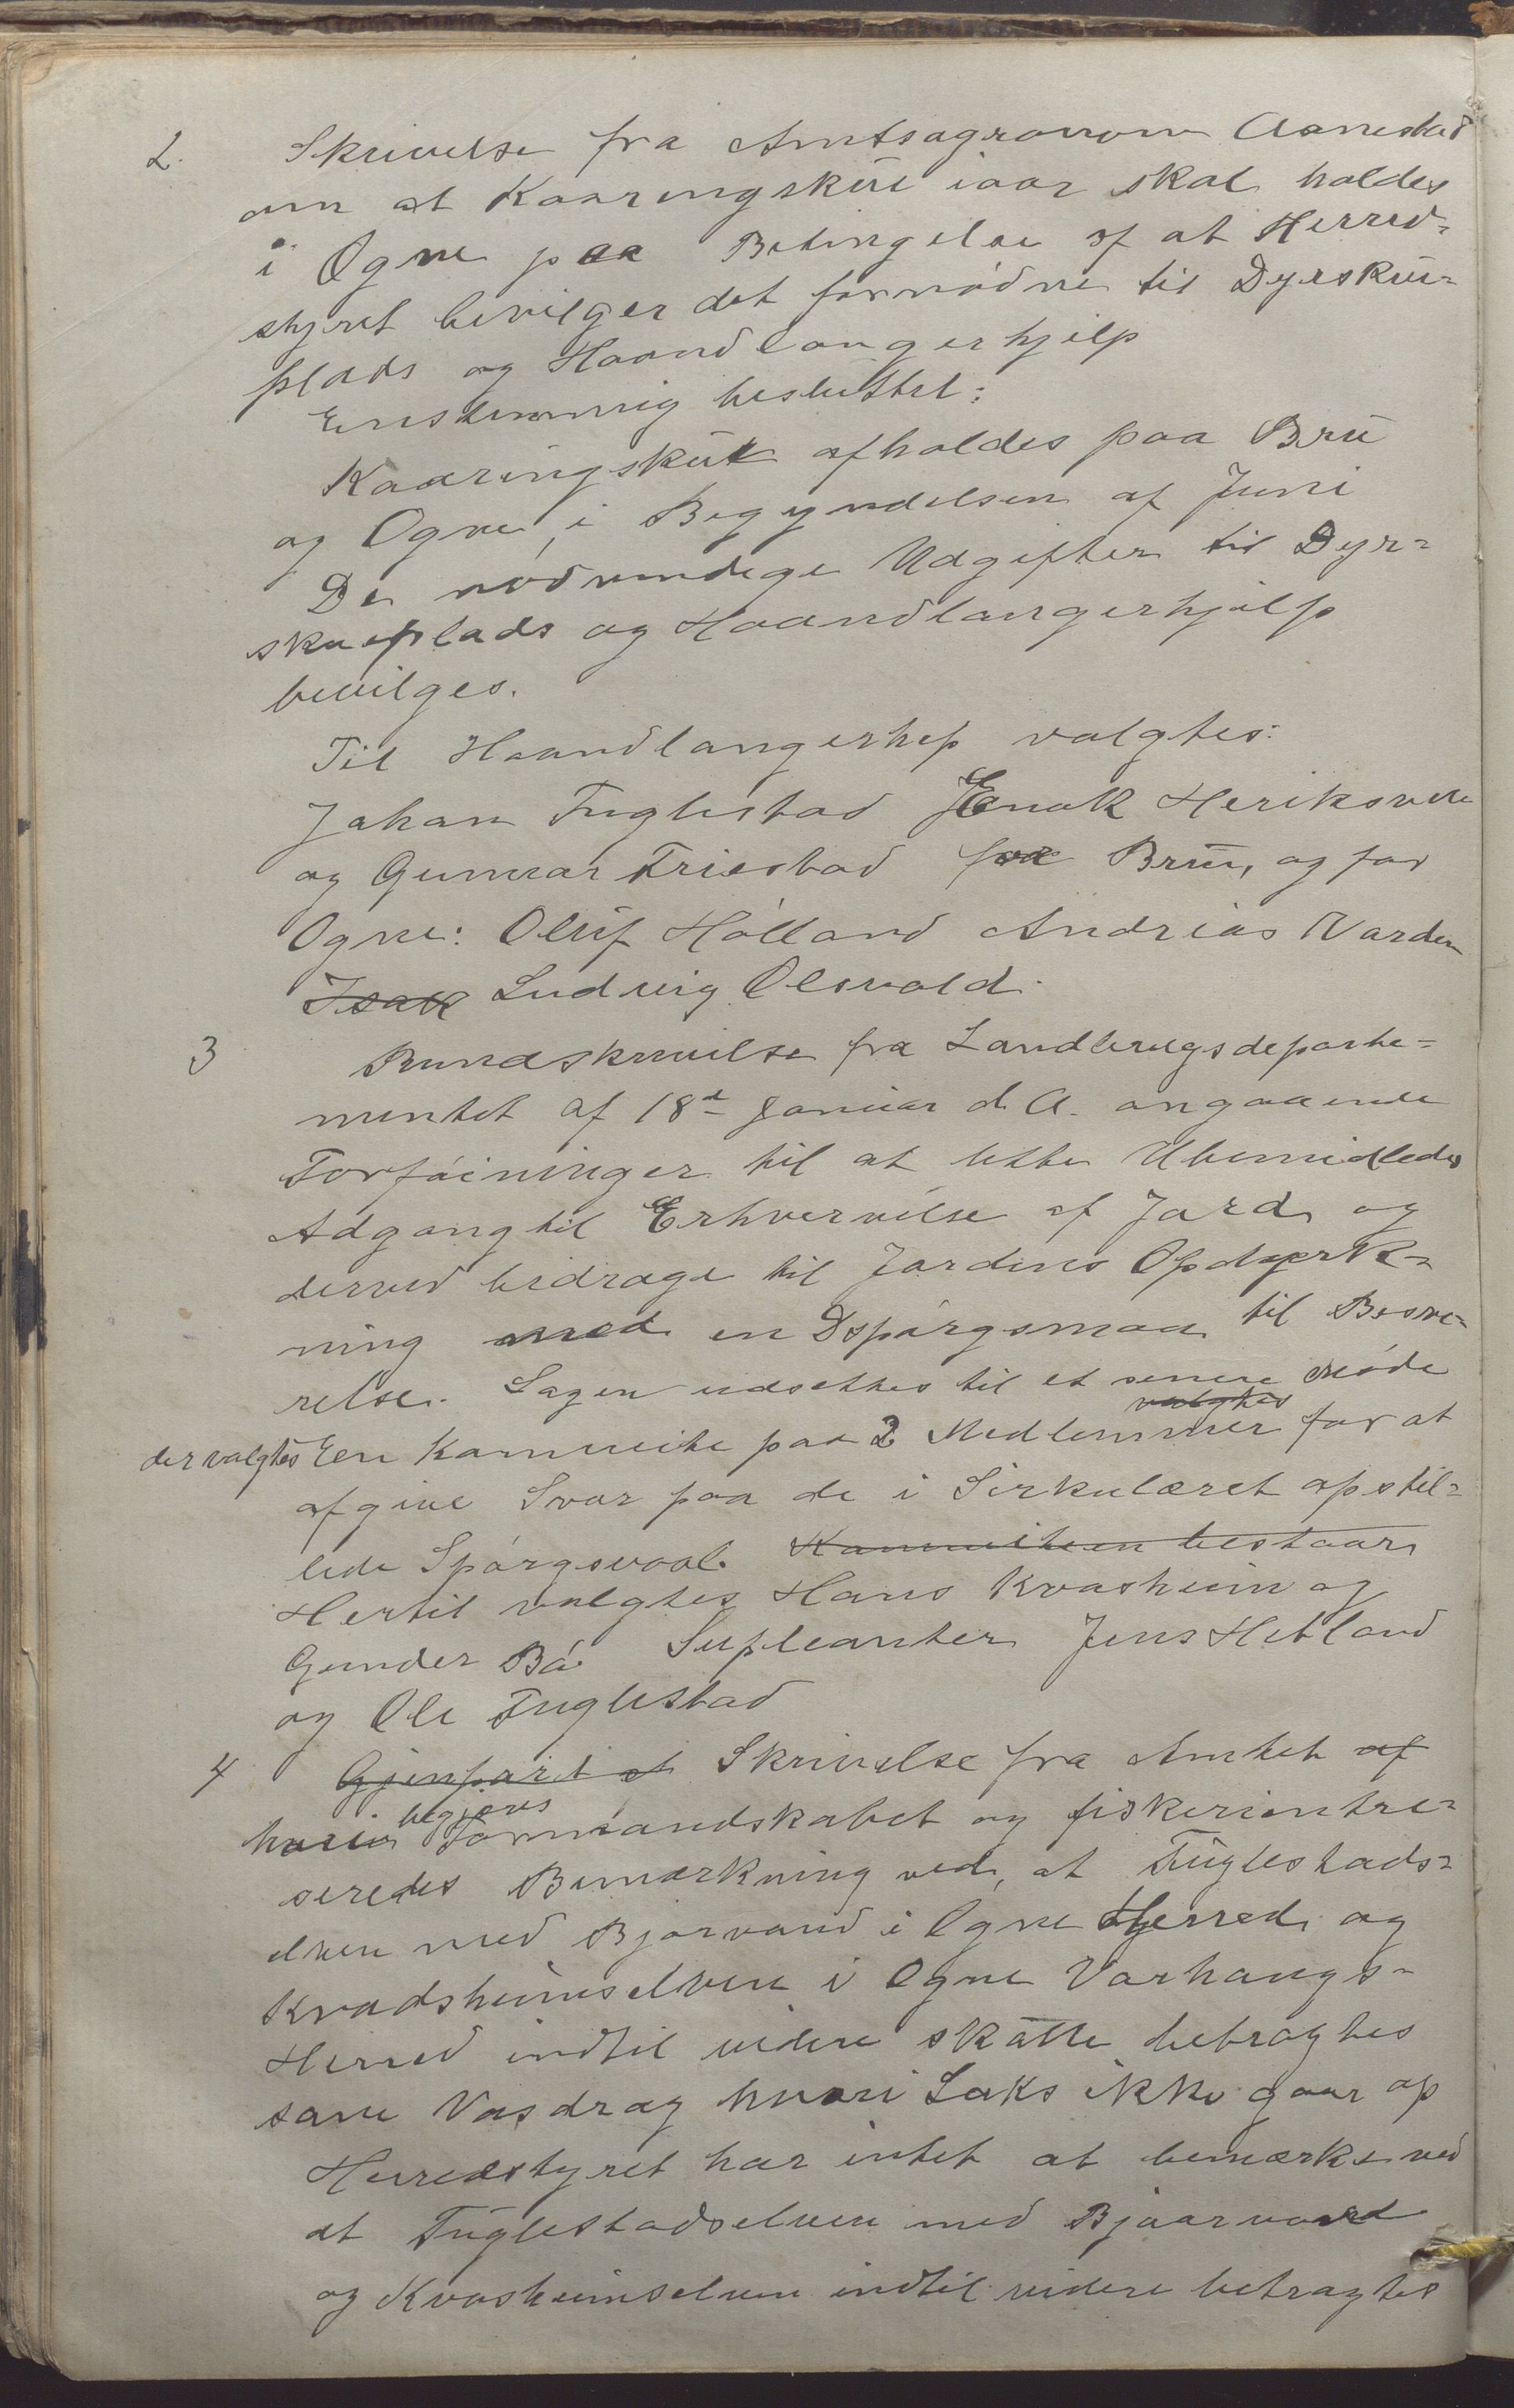 2. Skrivelse fra Amtsagronom Aanestad
om at Kaaringsskue iaar skal holdes
i Ogne paa Betingelse af at Herred-
styret bevilger det fornødne til Dyrskue-
plads og Haandlangerhjelp
Enstemmig besluttet:
Kaaringsskue afholdes paa Bru
og Ogne i Begyndelsen af Juni
De nødvendige Udgifter til Dyr-
skueplads og Haandlangerhjælp
bevilges.
Til Haandlangerhep valgtes:
Johan Fuglestad Enok Heriksen
og Gunnar Friestad for Bru, og for
Ogne: Oluf Hølland Andreas Varden
Isak Ludvig Olsvold.
3 Rundskrivelse fra Landbrugsdeparte-
mentet af 18de Januar d. A. angaaende
Forføininger til at lette Ubemidledes
Adgang til Erhvervelse af Jord og
derved bidrage til Jordens Opdyrk-
ning med en Dspørgsmaa til Besva-
relse. Sagen udsettes til et senere Møde
valgtes
der valgtes En Kommite paa 2 Medlemmer for at
afgive Svar paa de i Sirkulæret opstil-
lede Spørgsmaal. Kommiteen bestaar
Hertil valgtes Hans Kvasheim og
Gunder Bø. Supleanter Jens Hetland
og Ole Fuglestad
4 Gjenpart af Skrivelse fra Amtet af
begjæres
hvori Formandskabet og fiskeriintre-
seredes Bemærkning ved, at Fuglestads-
elven med Bjørvand i Ogne Herred og
Kvadsheimselven i Ogne Varhaugs-
Herred indtil videre skulle betragtes
som Vasdrag hvori Laks ikke gaar op
Herredstyret har intet at bemærke ved
at Fuglestadselven med Bjaarvand
og Kvasheimselven indtil videre betragtes